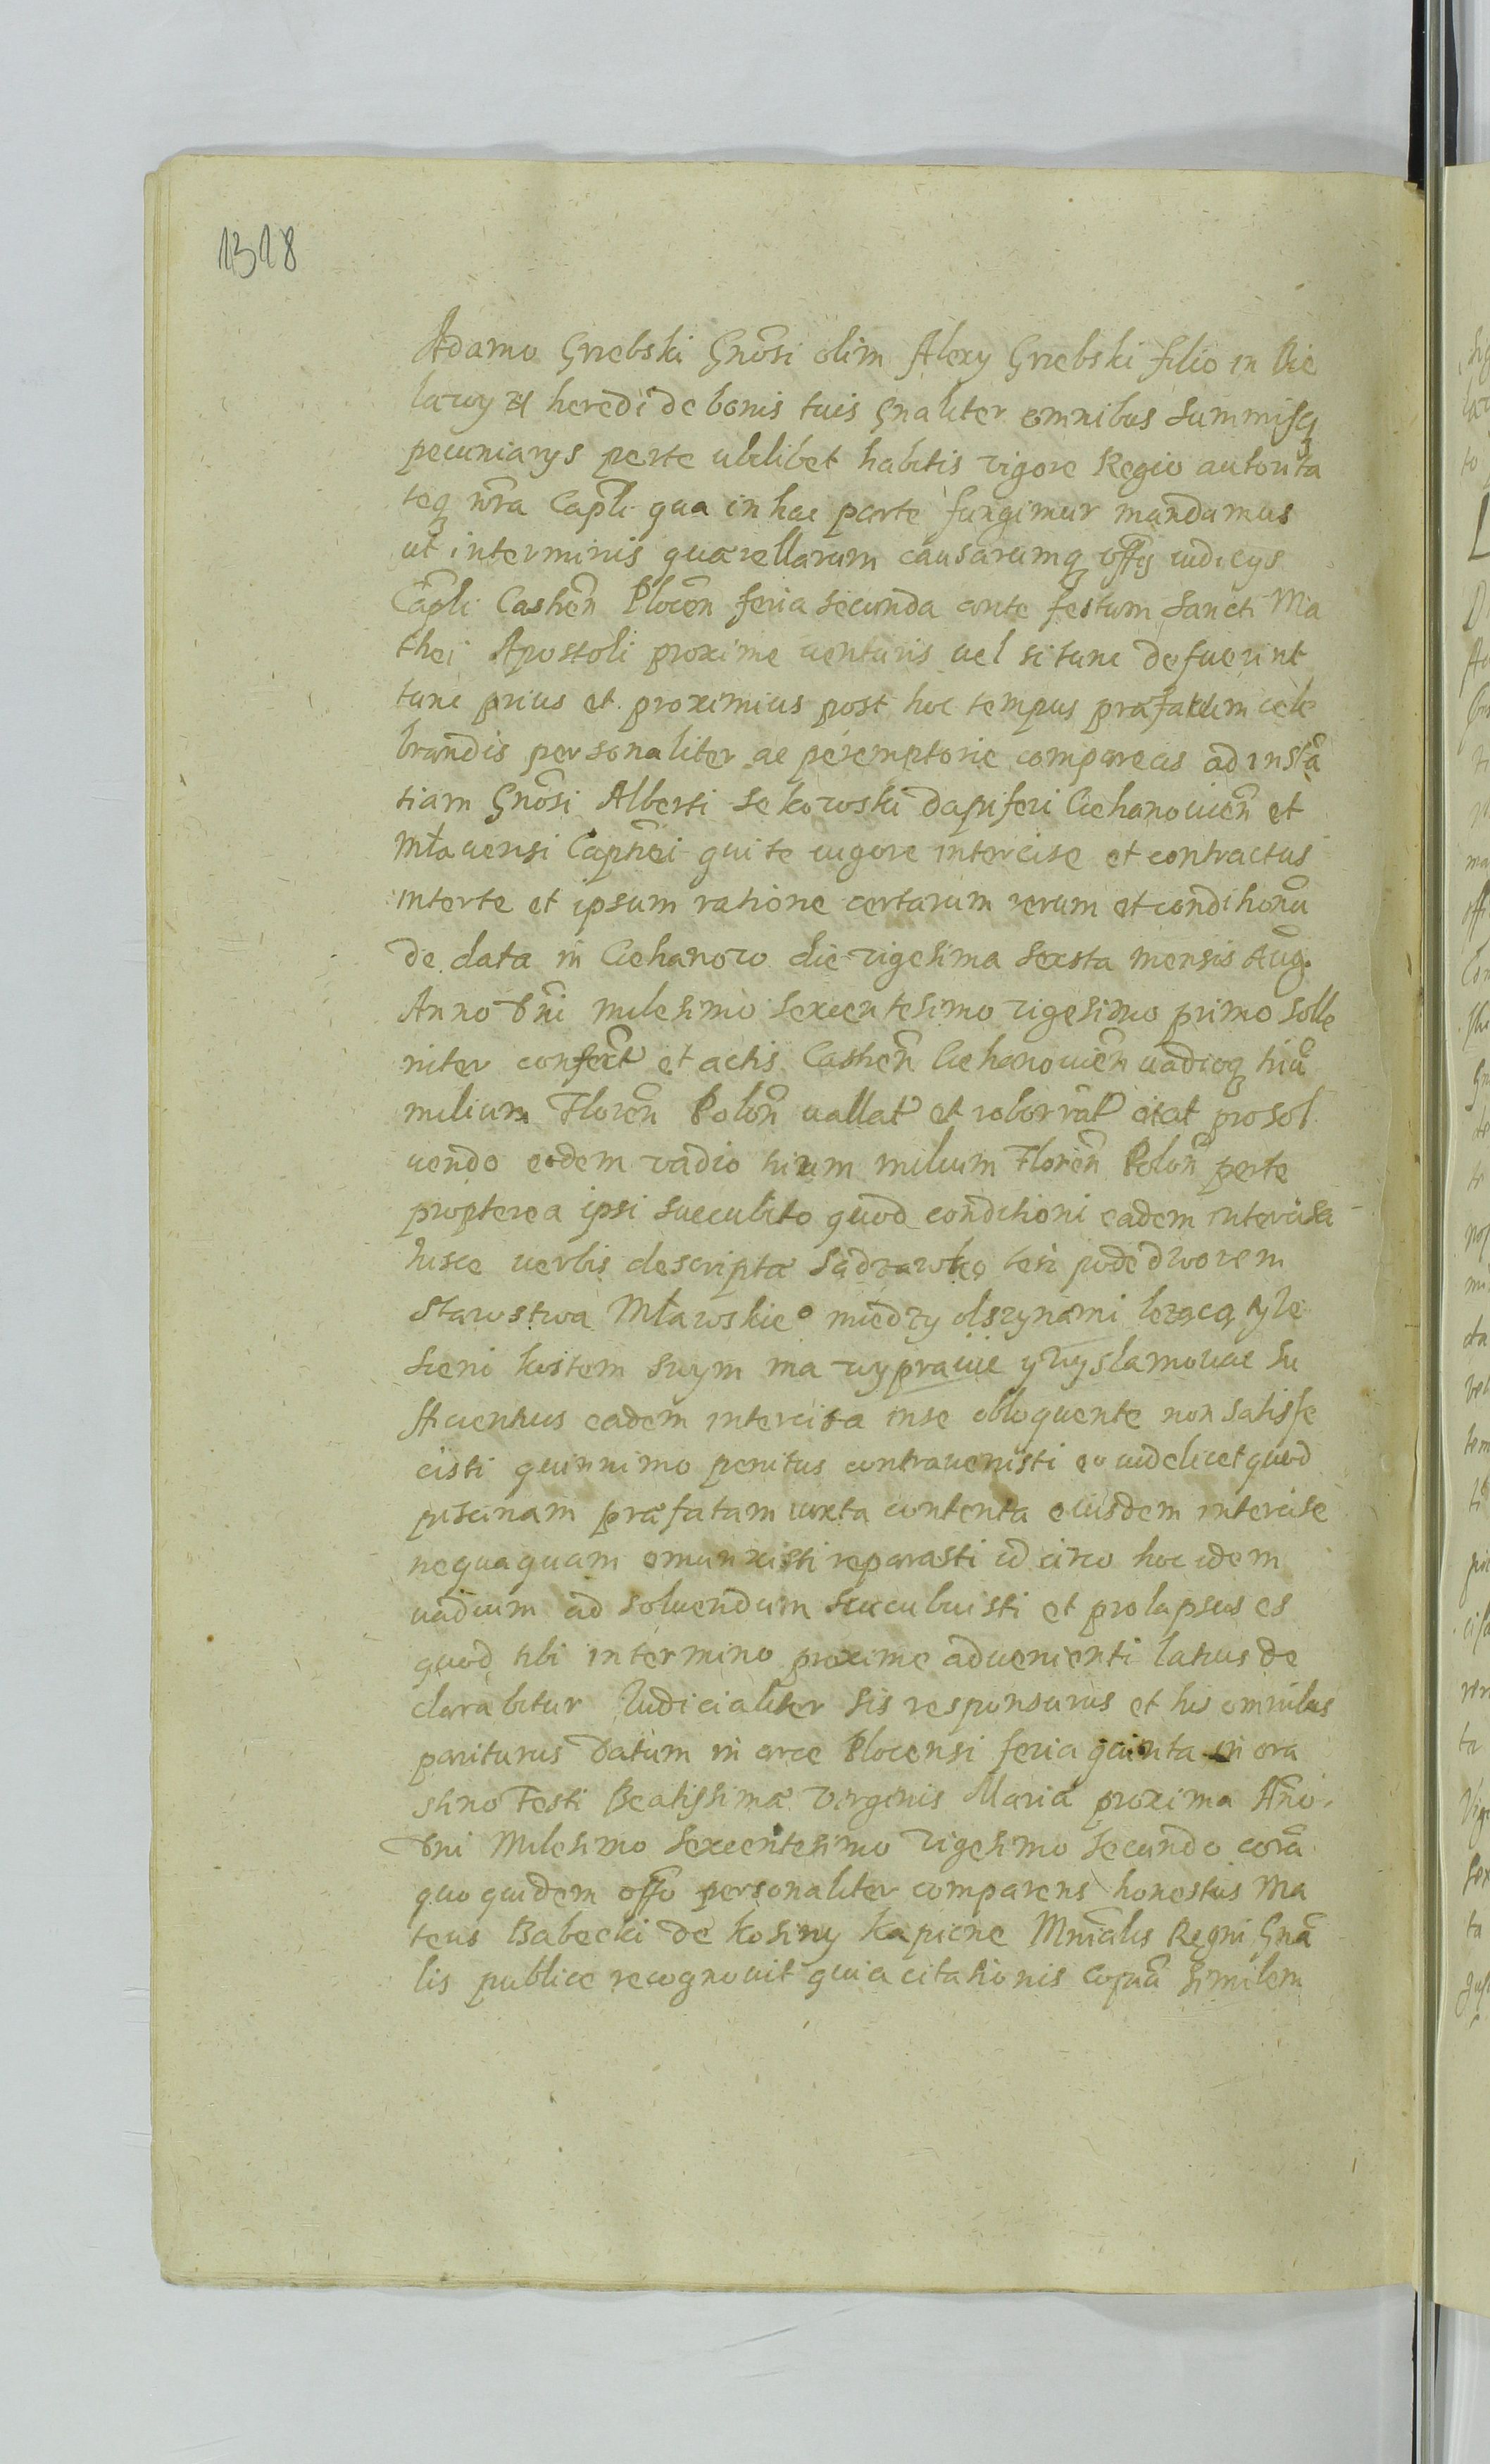 1318
Adamo Grzebski Gnosi olim Alexy Grzebski filio in Bie
lawy heredi de bonis tuis gnaliter omnibus summisq
pecuniarys perte ubilibet habitis vigore Regio autorita
teq nra Capli qua in hac parte fungimur mandamus
ut interminis quærellarum causarumq offy iudicys
Capli Castren Plocen feria secunda ante festum Sancti Ma
thei Apostoli proxime venturis uel si tunc defuerint
tunc prius et proximius post hoc tempus præfatum cele
brandis personaliter ac peremptorie compareas ad instã
tiam Gnosi Alberti Sokowski dapiferi Ciehanouien et
Mławensi Captnei qui te uigore intercise et contractus
interte et ipsum ratione certarum rerum et conditionũ
de data in Ciehanow die vigesima sexta mensis Aug
Anno Dni milesimo sexcentesimo vigesimo primo solle
niter confect et actis Castren Ciehanouien uadioq triũ
milium Floren Polon uallat et roborrat citat pro sol
uendo eodem vadio trium milium Floren Polon perte
propterea ipsi succubito quod conditioni eadem intercisa
hisce verbis descriptæ Sądzawkę tesz podedworem
Starostwa Mławskieo między olszynami lezącą tyle
sieni kostem swym ma wyprawic y wyslamowac su
fficientius eadem intercisa inse obloquente non satisfe
cisti quinnimo penitus contrauenisti eo uidelicet quod
piscinam præfatam iuxta contenta eiusdem intercise
nequaquam emunxisti reparasti id circo hoc idem
uadium ad soluendum succubuisti et prolapsus es
quod tibi intermino proxime aduenienti latius de
clarabitur Iudicialiter sis responsurus et his omnibus
pariturus Datum in arce Plocensi feria quinta in cra
stino Festi Beatissimæ Virginis Mariæ proxima Ano
Dni Milesimo Sexcentesimo Vigesimo Secundo corã
quo quidem offo personaliter comparens honestus Ma
teus Babecki de Kosiny Kapicne Mnialis Regni Gnã
lis publice recognouit quia citationis copiã similem